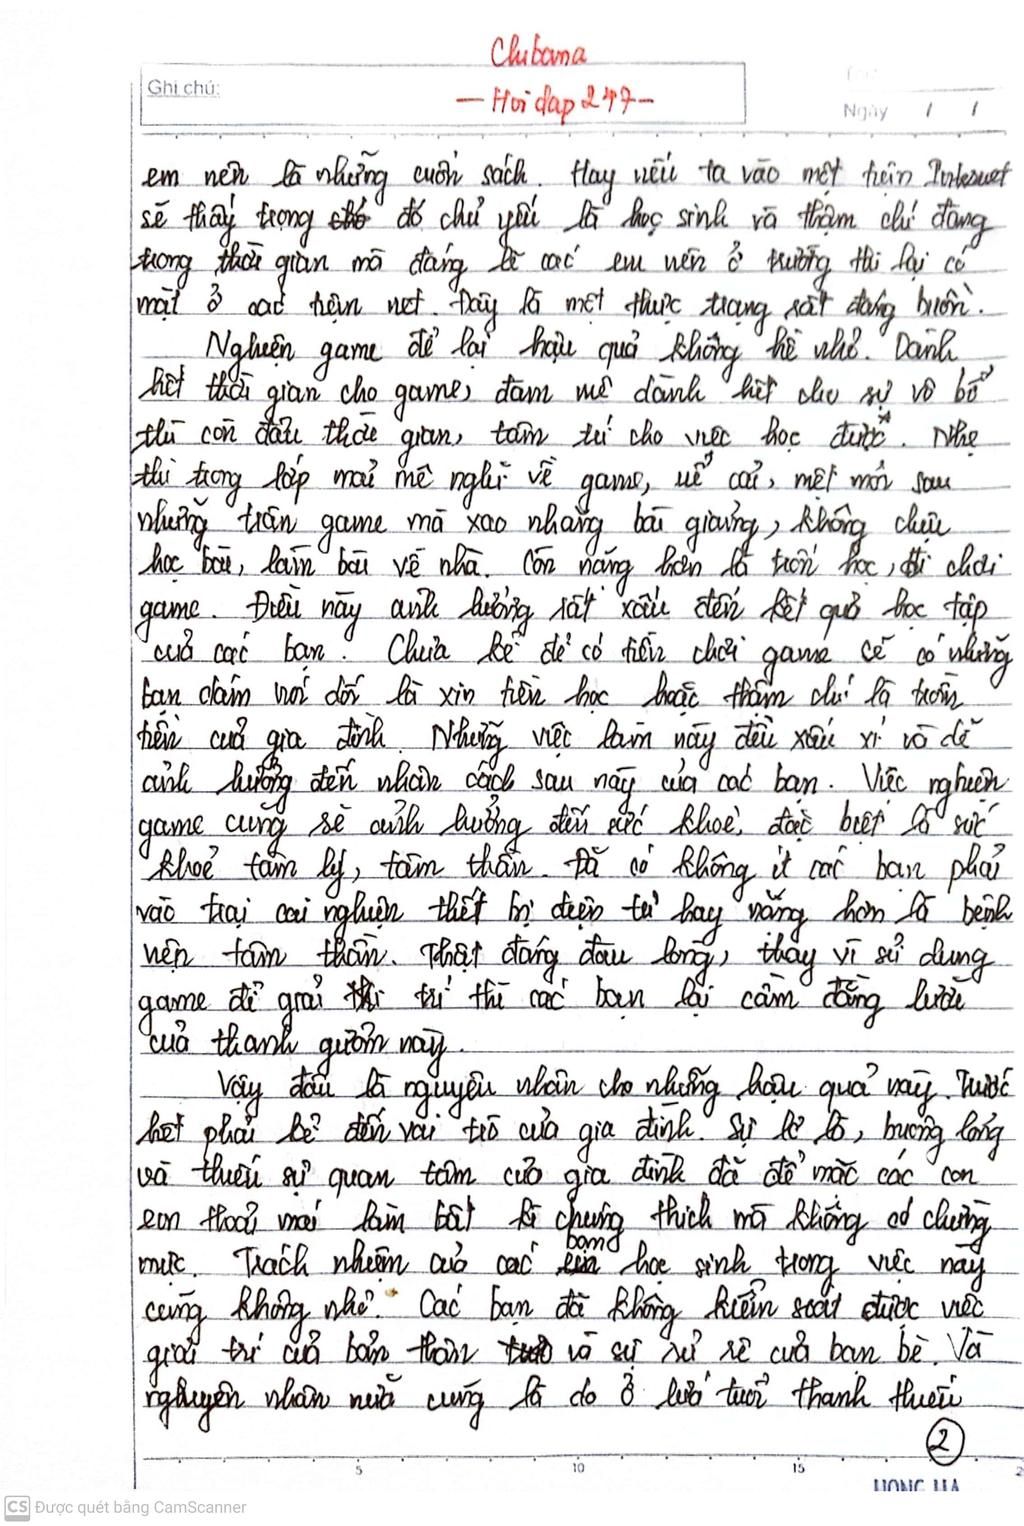 Chibana
Ghi chú:
— Hỏi đáp 247 —
Ngày / /
em nên là những cuốn sách. Hay nếu ta vào một tiệm Internet
sẽ thấy trong đó chủ yếu là học sinh và thậm chí đang
trong thời gian mà đáng lẽ các em nên ở trường thì lại có
mặt ở các tiệm net. Đây là một thực trạng rất đáng buồn.
Nghiện game để lại hậu quả không hề nhỏ. Dành
hết thời gian cho game, đam mê dành hết cho sự vô bổ
thì còn đâu thời gian, tâm trí cho việc học được. Nhẹ
thì trong lớp mải mê nghĩ về game, uể oải, mệt mỏi sau
những trận game mà xao nhãng bài giảng, không chịu
học bài, làm bài về nhà. Còn nặng hơn là trốn học, đi chơi
game. Điều này ảnh hưởng rất xấu đến kết quả học tập
của các bạn. Chưa kể để có tiền chơi game sẽ có những
bạn dám nói dối là xin tiền học hoặc thậm chí là trộm
tiền của gia đình. Những việc làm này đều xấu xí và dễ
ảnh hưởng đến nhân cách sau này của các bạn. Việc nghiện
game cũng sẽ ảnh hưởng đến sức khoẻ, đặc biệt là sức
khoẻ tâm lý, tâm thần. Đã có không ít các bạn phải
vào trại cai nghiện thiết bị điện tử hay nặng hơn là bệnh
viện tâm thần. Thật đáng đau lòng, thay vì sử dụng
game để giải trí thì các bạn lại cầm đằng lưỡi
của thanh gươm này.
Vậy đâu là nguyên nhân cho những hậu quả này. Trước
hết phải kể đến vai trò của gia đình. Sự lơ là, buông lỏng
và thiếu sự quan tâm của gia đình đã để mặc các con
em thoải mái làm bất kì chúng thích mà không có chừng
mực. Trách nhiệm của các bạn học sinh trong việc này
cũng không nhỏ. Các bạn đã không kiểm soát được việc
giải trí của bản thân và sự rủ rê của bạn bè. Và
nguyên nhân nữa cũng là do ở lứa tuổi thanh thiếu
2
5 10 15
HONG HA
CS Được quét bằng CamScanner